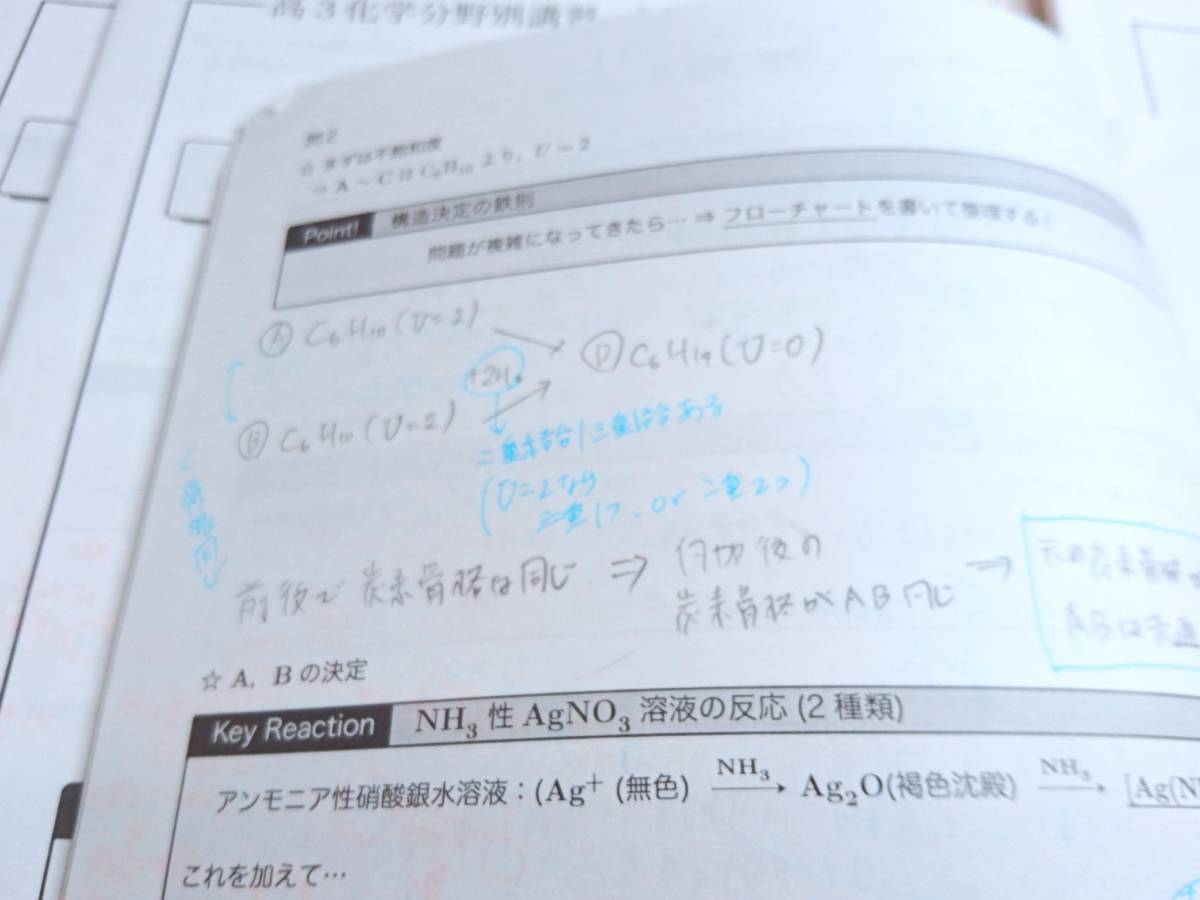 高3化学分野別講習
問2
☆まずは不飽和度
⇒A～CはC6H10より，U＝2
Point! 構造決定の鉄則
問題が複雑になってきたら…⇒フローチャートを書いて整理する!
Ⓐ C6H10(U=2)
Ⓓ C6H14(U=0)
+2H2
Ⓑ C6H10(U=2)
二重結合|三重結合ある
(U=2なら
三重1つ、or 二重2つ)
骨格同じ
前後で炭素骨格は同じ ⇒ 付加後の
炭素骨格がAB同じ →
元の炭素骨格
ABは共通
☆ A, B の決定
Key Reaction NH3 性 AgNO3 溶液の反応 (2 種類)
アンモニア性硝酸銀水溶液：(Ag+ (無色) NH3→ Ag2O(褐色沈殿) NH3→ [Ag(N
これを加えて…